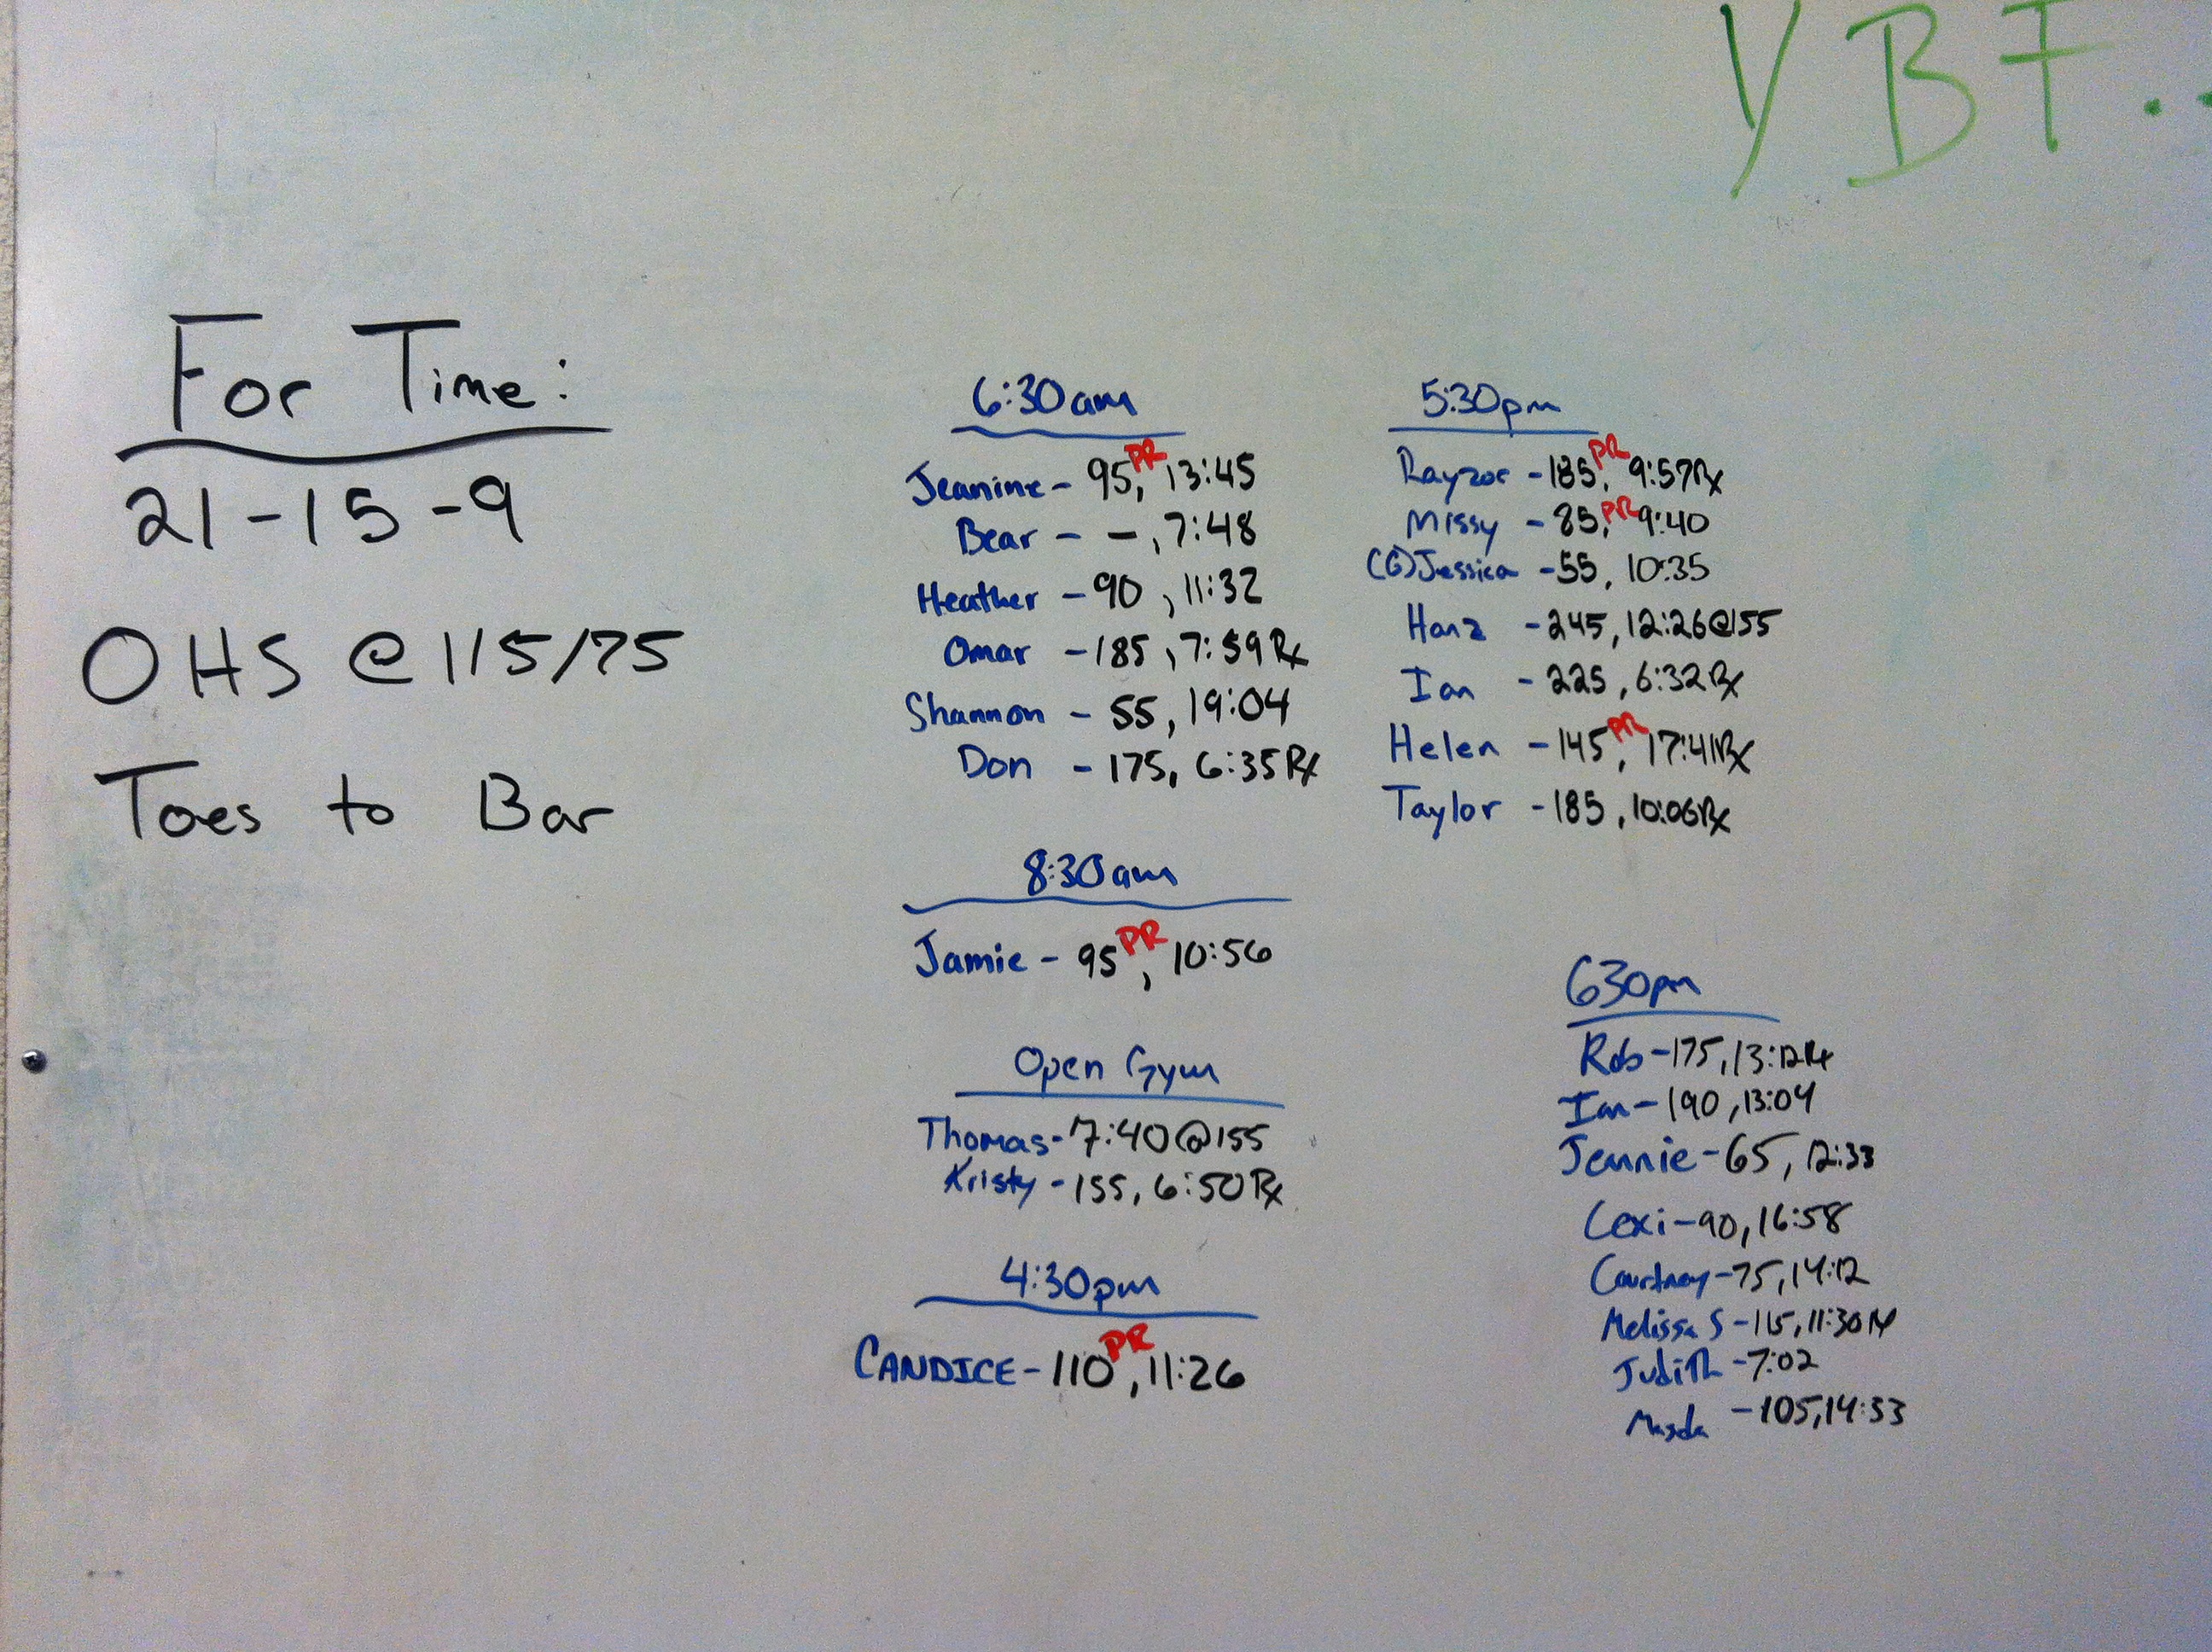 YBF..
For Time:
21-15-9
OHS @ 115/75
Toes to Bar
6:30am
Jeanine - 95, PR 13:45
Bear - -, 7:48
Heather - 90, 11:32
Omar - 185, 7:59 Rx
Shannon - 55, 19:04
Don - 175, 6:35 Rx
8:30am
Jamie - 95 PR, 10:56
Open Gym
Thomas - 7:40 @ 155
Kristy - 155, 6:50 Rx
4:30pm
CANDICE - 110 PR, 11:26
5:30pm
Rayzor - 185, PR 9:57 Rx
Missy - 85, PR 9:40
(G) Jessica - 55, 10:35
Hanz - 245, 12:26 @ 155
Ian - 225, 6:32 Rx
Helen - 145 PR, 17:41 Rx
Taylor - 185, 10:06 Rx
630pm
Rob - 175, 13:12 Rx
Ian - 190, 13:04
Jennie - 65, 12:33
Lexi - 90, 16:58
Courtney - 75, 14:12
Melissa S - 115, 11:30 Rx
Judith - 7:02
- 105, 14:33